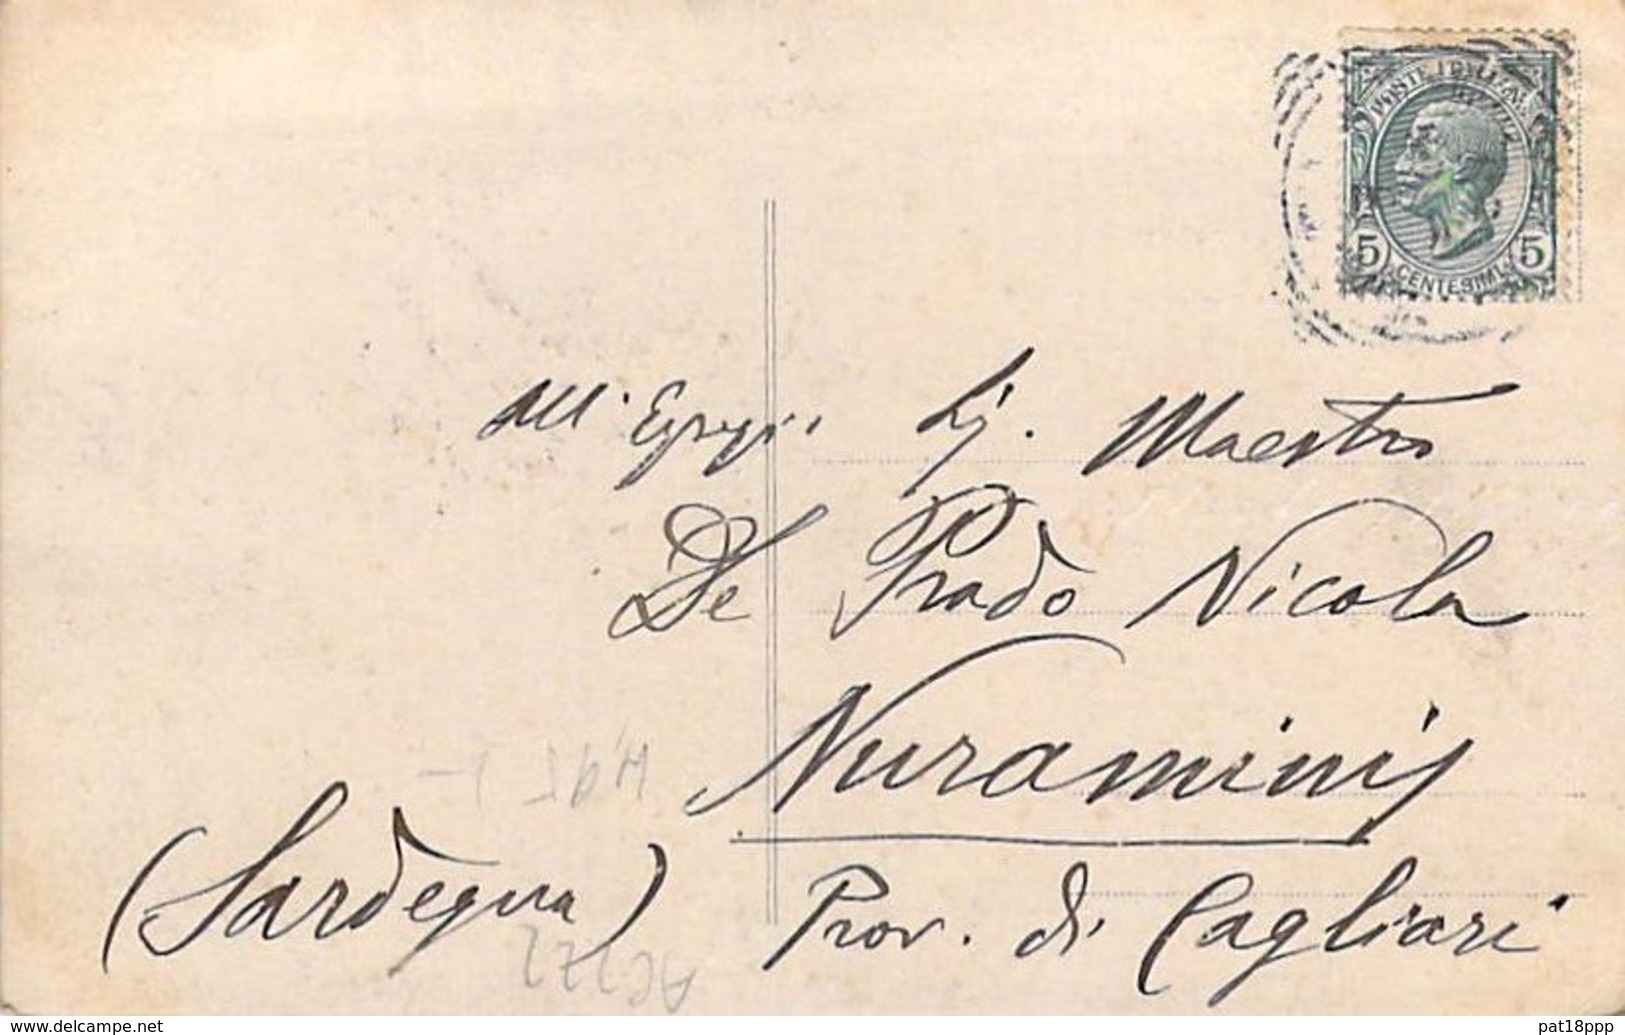 POSTE ITALIANE
5 5
CENTESIMI
All' Egregio Sig. Maestro
De Prado Nicola
Nuraminis
Prov. di Cagliari
(Sardegna)
AC722
www.delcampe.net
pat18ppp